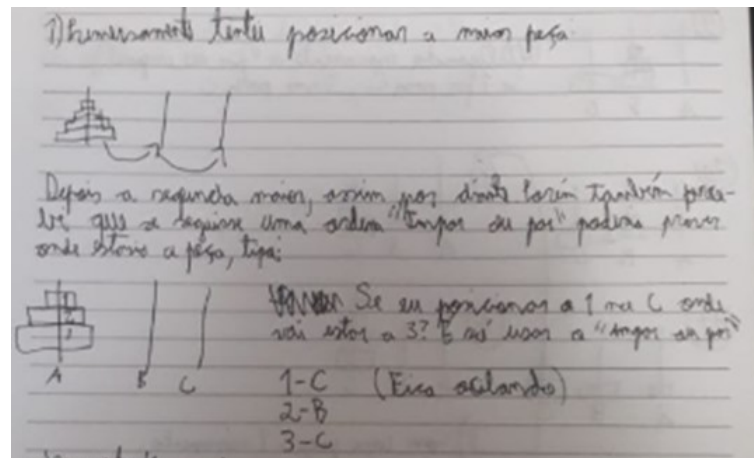 1) Primeiramente tentei posicionar a maior peça.
Depois a segunda maior, assim por diante também perce-
bi que se seguisse uma ordem "ímpar ou par" poderia prever
onde estava a peça, tipo:
Se eu posicionar a 1 na C onde
vai estar a 3? É só usar a "ímpar ou par"
A B C
1-C (Fica oscilando)
2-B
3-C